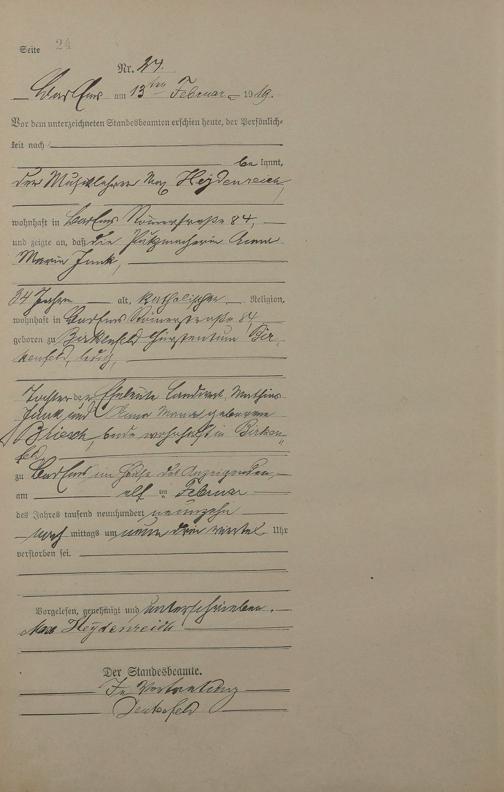 Seite 24
Nr. 24.
Bad Ems am 13ten Februar 1919.
Vor dem unterzeichneten Standesbeamten erschien heute, der Persönlich-
keit nach
be kannt,
der Musiklehrer Max Heydenreich,
wohnhaft in Bad Ems Römerstraße 84,
und zeigte an, daß die Putzmacherin Anna
Maria Junk,
34 Jahre alt, katholischer Religion,
wohnhaft in Bad Ems Römerstraße 84
geboren zu Birkenfeld Fürstentum Bir-
kenfeld, ledig,
Tochter der Eheleute Landwirt Mathias
Junk und Anna Maria geborene
Briesch, beide wohnhaft in Birken-
feld,
zu Bad Ems im Hause des Anzeigenden,
am elf ten Februar
des Jahres tausend neunhundert neunzehn
nach mittags um neun drei viertel Uhr
verstorben sei.
Vorgelesen, genehmigt und unterschrieben.
Max Heydenreich
Der Standesbeamte.
In Vertretung